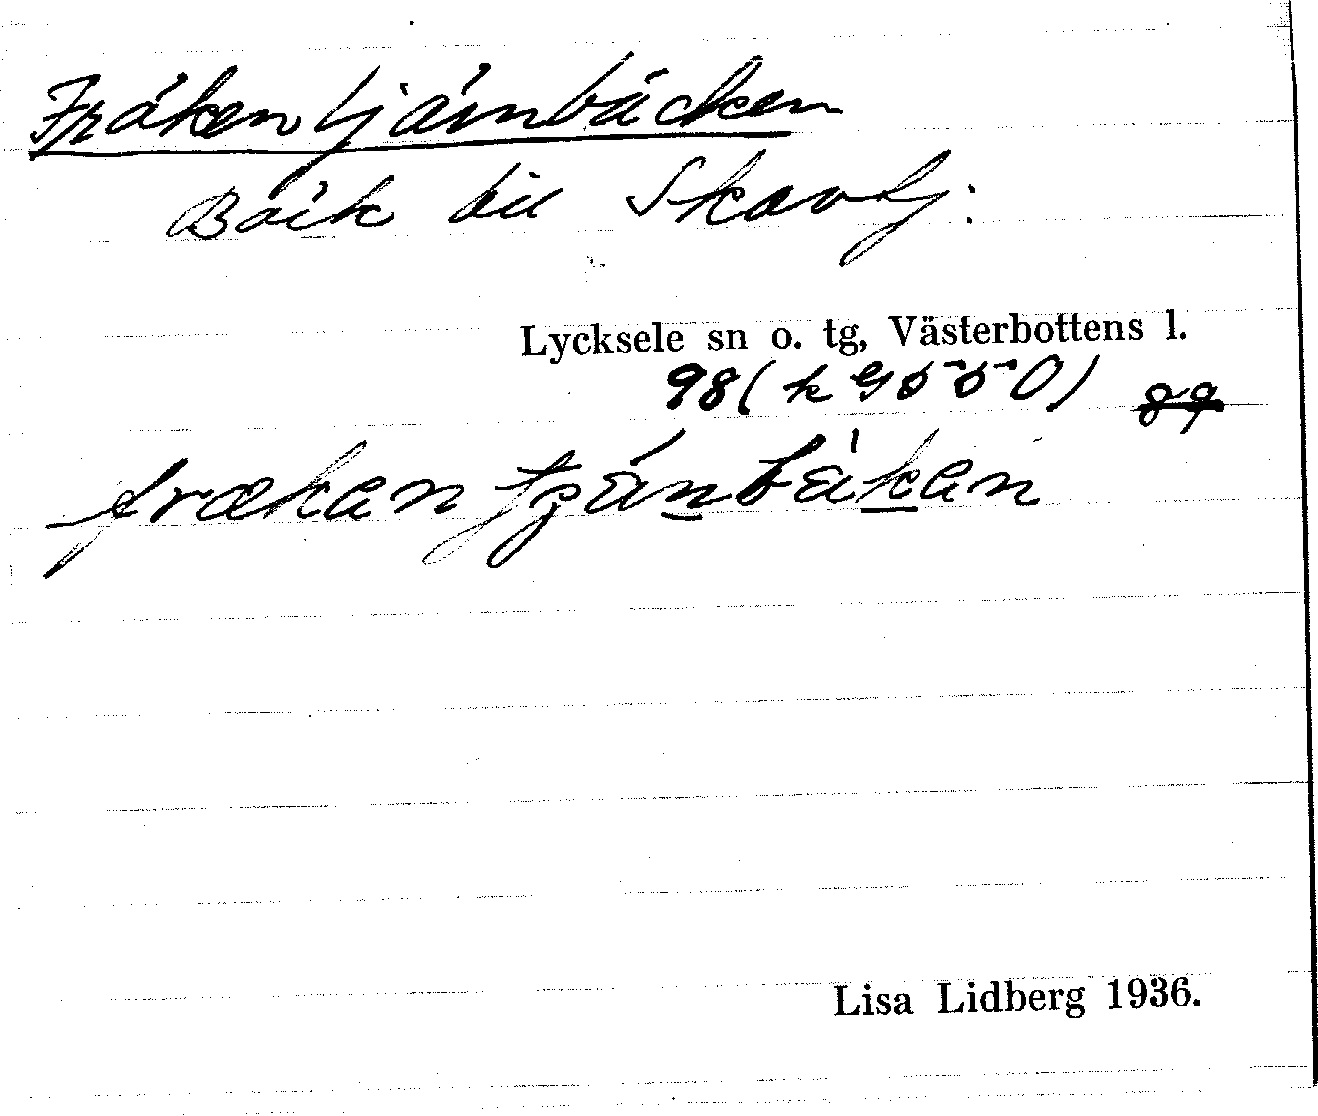 Fräkentjärnbäcken
Bäck till Skavtj:
Lycksele sn o. tg, Västerbottens l.
98 (k 9550) 89
frækantjánbäkan
Lisa Lidberg 1936.